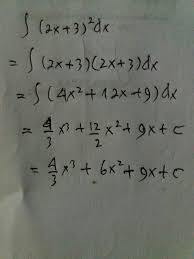 ∫ (2x+3)² dx
= ∫ (2x+3)(2x+3) dx
= ∫ (4x² + 12x + 9) dx
= 4/3 x³ + 12/2 x² + 9x + c
= 4/3 x³ + 6x² + 9x + c